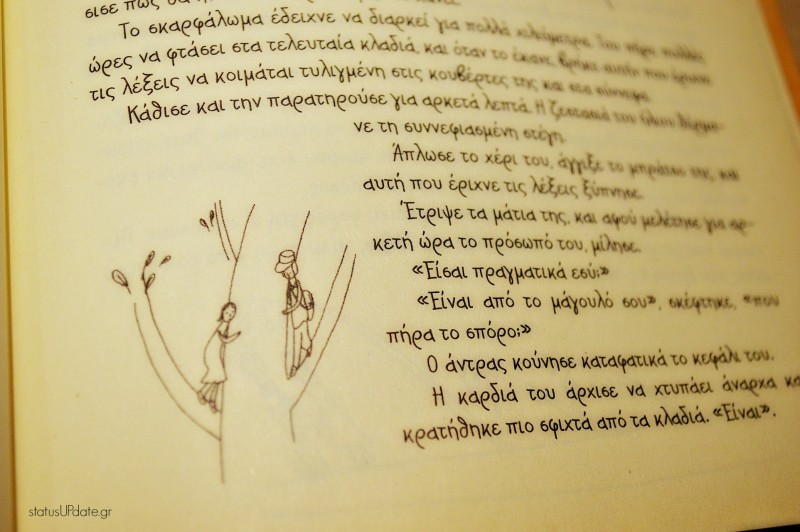 σισε πως θα
Το σκαρφάλωμα έδειχνε να διαρκεί για πολλά χιλιόμετρα. Του πήρε πολλές
ώρες να φτάσει στα τελευταία κλαδιά, και όταν το έκανε, βρήκε αυτήν που έριχνε
τις λέξεις να κοιμάται τυλιγμένη στις κουβέρτες της και στα σύννεφα.
Κάθισε και την παρατηρούσε για αρκετά λεπτά. Η ζεστασιά του ήλιου
νε τη συννεφιασμένη στέγη.
Άπλωσε το χέρι του, άγγιξε το μπράτσο της, και
αυτή που έριχνε τις λέξεις ξύπνησε.
Έτριψε τα μάτια της, και αφού μελέτησε για αρ-
κετή ώρα το πρόσωπό του, μίλησε.
«Είσαι πραγματικά εσύ;»
«Είναι από το μάγουλό σου», σκέφτηκε, «που
πήρα το σπόρο;»
Ο άντρας κούνησε καταφατικά το κεφάλι του.
Η καρδιά του άρχισε να χτυπάει άναρχα κα
κρατήθηκε πιο σφιχτά από τα κλαδιά. «Είναι».
statusUPdate.gr